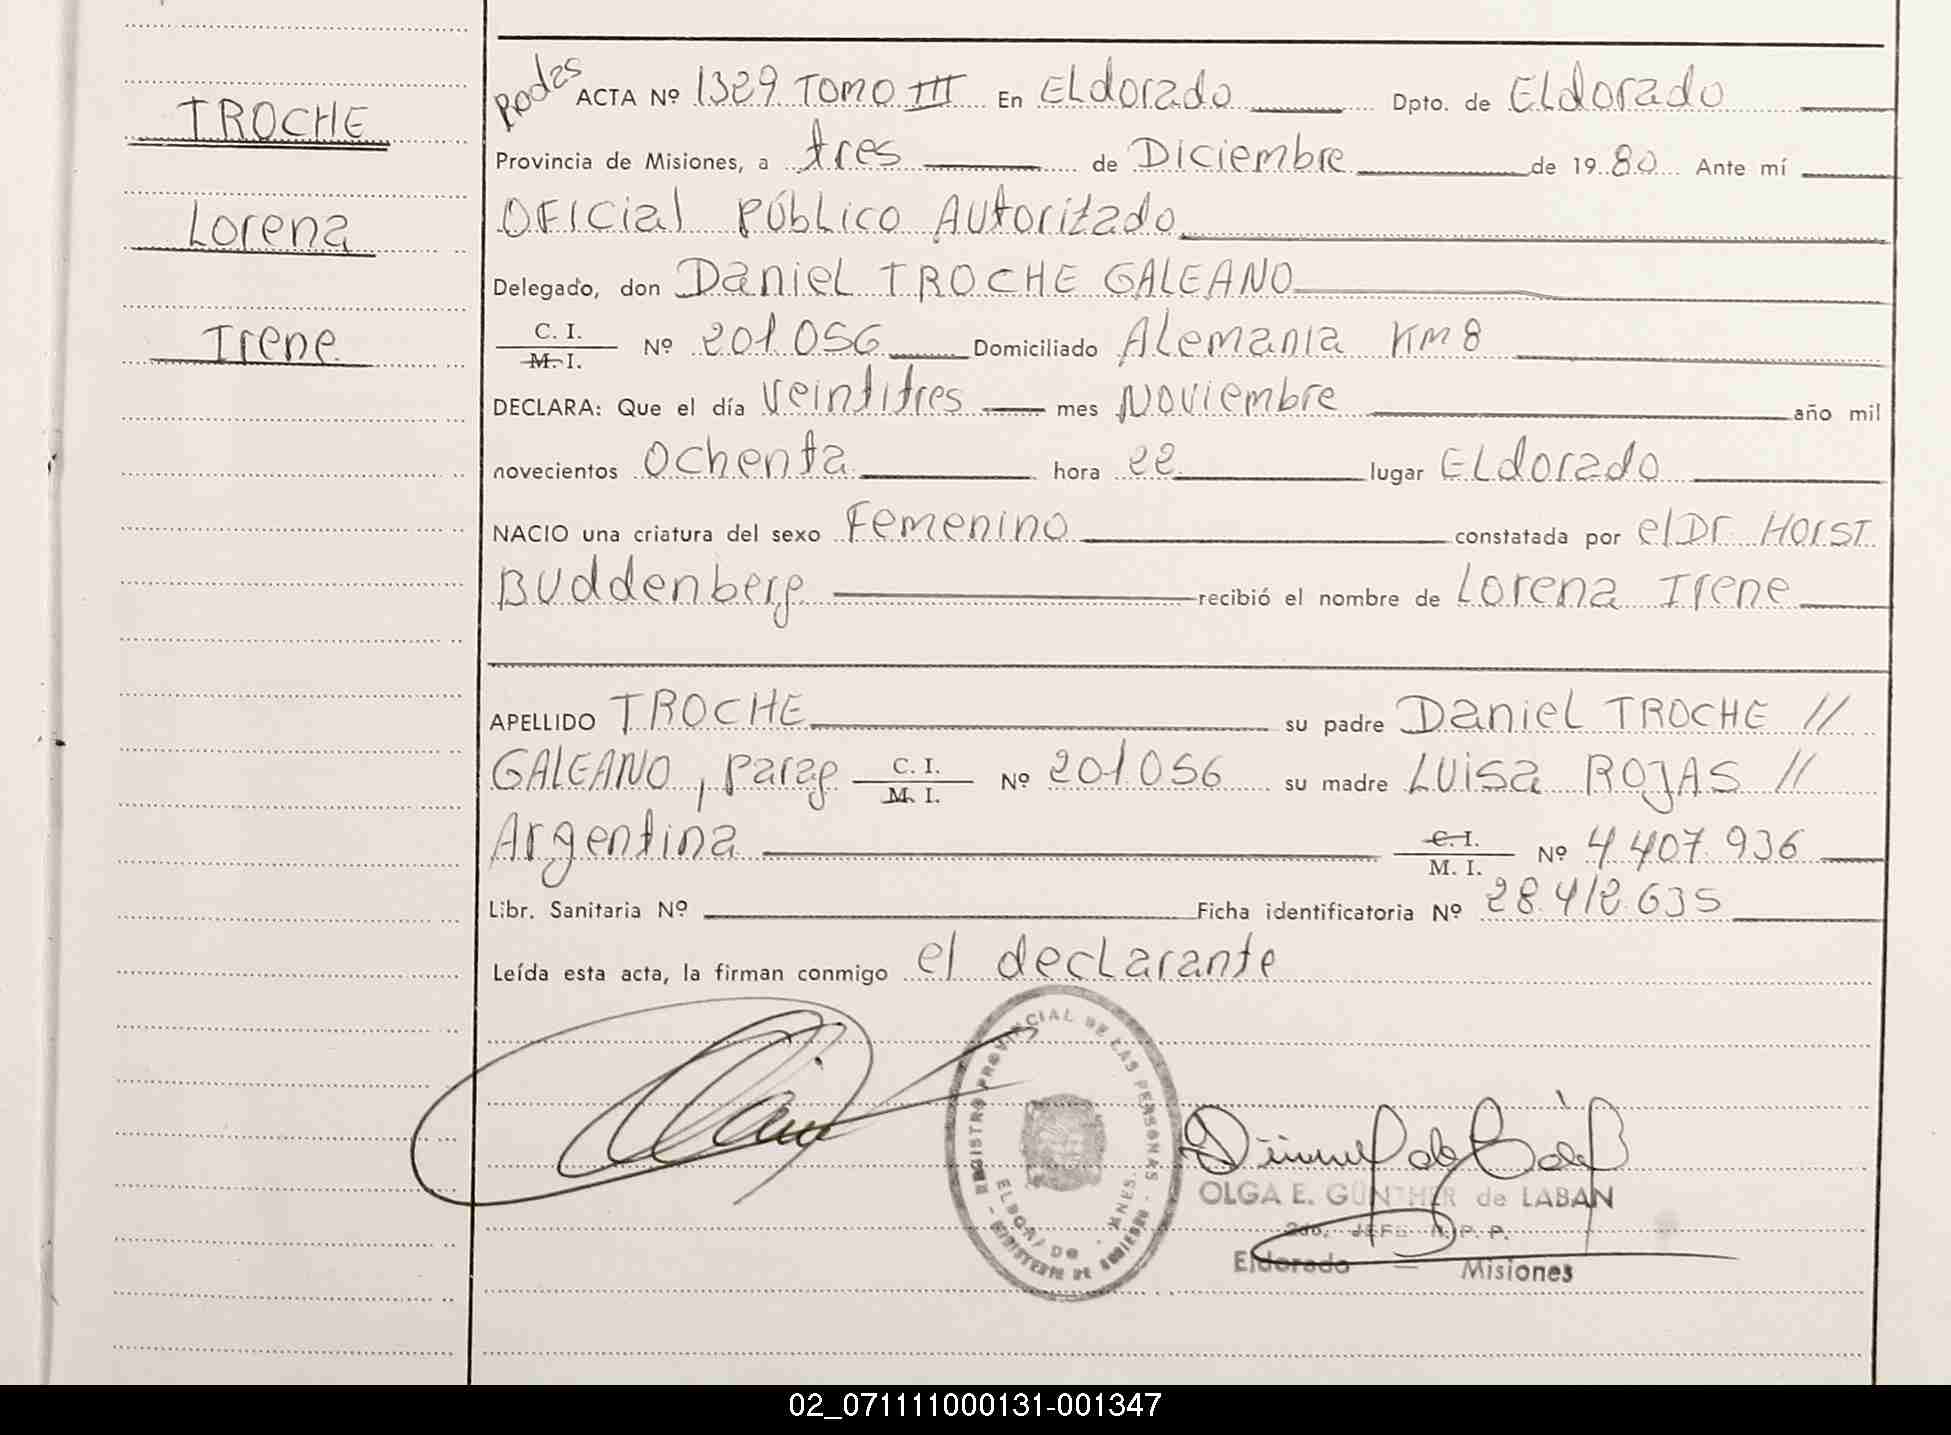 TROCHE
Lorena
Irene
Rodas
ACTA Nº 1329 TOMO III En ELdorado Dpto. de ELdorado
Provincia de Misiones, a tres de Diciembre de 1980 Ante mí
OFICial PÚBLICO AUtoritado
Delegado, don DanieL TROCHE GALEANO
C. I.
M. I. Nº 201.056 Domiciliado ALemania Km 8
DECLARA: Que el día Veintitres mes Noviembre año mil
novecientos Ochenta hora 22 lugar ELdorado
NACIO una criatura del sexo Femenino constatada por el Dr Horst
Buddenberg recibió el nombre de Lorena Irene
APELLIDO TROCHE su padre DanieL TROCHE //
GALEANO, parag C. I.
M. I. Nº 201.056 su madre LUisa ROJAS //
Argentina C. I.
M. I. Nº 4.407.936
Libr. Sanitaria Nº Ficha identificatoria Nº 28.412.635
Leída esta acta, la firman conmigo el decLarante
REGISTRO PROVINCIAL DE LAS PERSONAS - MINISTERIO DE GOBIERNO -
ELDORADO
OLGA E. GÜNTHER de LABAN
2do. JEFE R. P. P.
Eldorado — Misiones
02_071111000131-001347